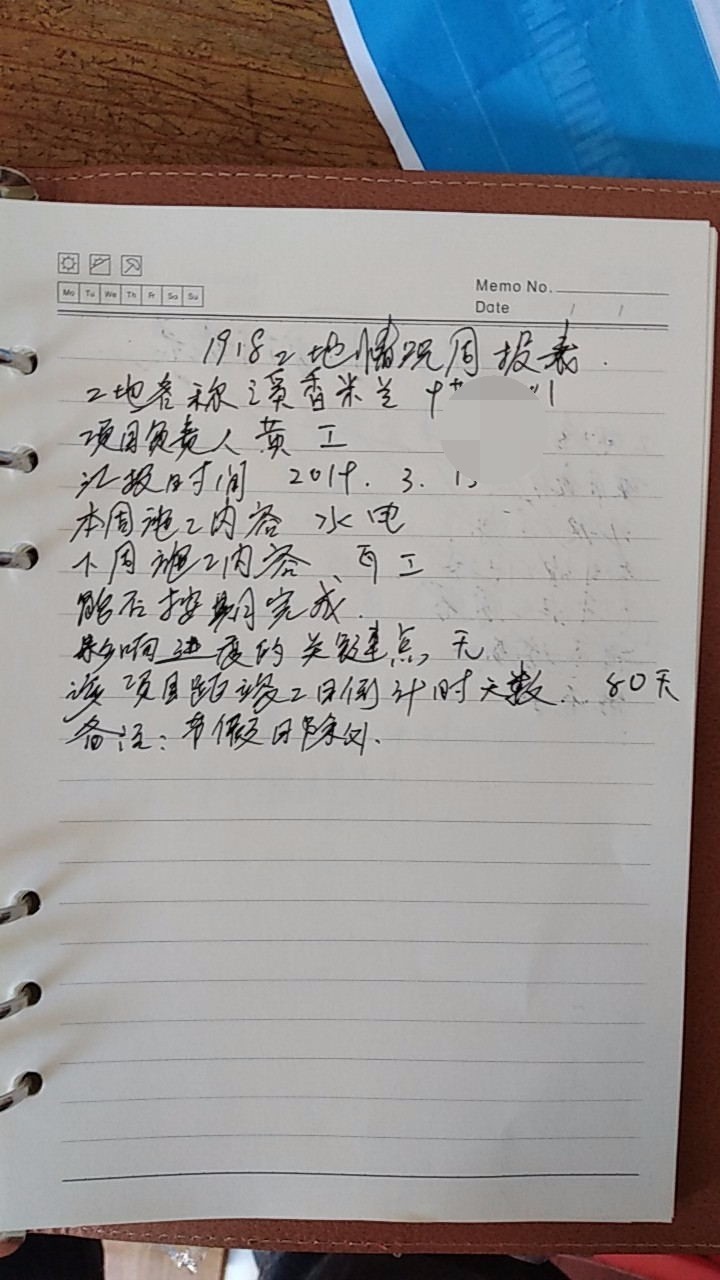 Mo Tu We Th Fr Sa Su
Memo No.
Date / /
1918工地情况周报表.
工地名称:溪香米兰
项目负责人 黄工
汇报时间 2019. 3.
本周施工内容 水电
下周施工内容、瓦工
能否按期完成.
影响进度的关键点, 无
该项目距竣工日倒计时天数. 80天
备注:节假日除外.